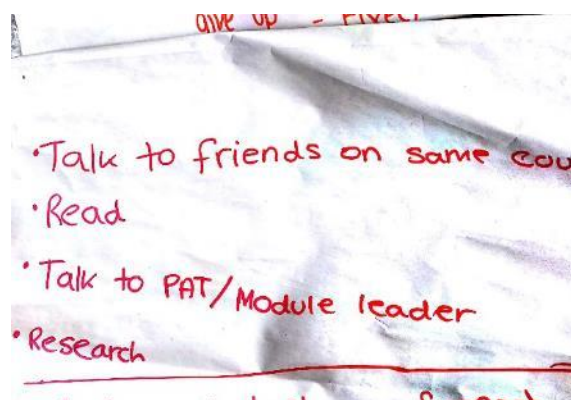 give up -
• Talk to friends on same cou
• Read
• Talk to PAT/Module leader
• Research